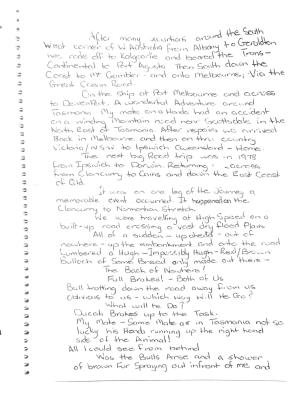 After many xcursions around the South
West corner of W Australia from Albany to Geraldton
we rode off to Kalgoorlie and boared the Trans-
Continental to Port Augusta Then South down the
Coast to Mt Gambier - and onto Melbourne, Via the
Great Ocean Road
On the ship at Port Melbourne and across
to DevenPort. A wonderful Adventure around
Tasmania My mate on a Honda had an accident
on a winding Mountain road near Scottsdale in the
North East of Tasmania After repairs we arrived
Back in Melbourne and then on thru country
Victoria/NSW to Ipswich Queensland - Home
The next big Road trip was in 1978
from Ipswich to Darwin Returning - across
from Cloncurry to Cairns and down the East Coast
of Qld.
It was on one leg of the Journey a
memorable event occurred It happened on the
Cloncurry to Normanton Stretch.
We were travelling at High Speed on a
built-up road crossing a vast dry flood Plain
All of a sudden - up ahead - out of
nowhere - up the embankment and onto the road
Lumbered a Huge - Impossibly Huge - Red/Brown
Bullock of Some Breed only made out there -
The Back of Nowhere!
Full Brakes! - Both of Us
Bull trotting down the road away from us
Oblivious to us - which way Will He Go?
What will he Do?
Ducati Brakes up to the Task.
My Mate - Same Mate as in Tasmania not so
lucky his Honda running up the right hand
side of the Animal!
All I could see from behind
Was the Bulls Arse and a shower
of brown Fur Spraying out infront of me and